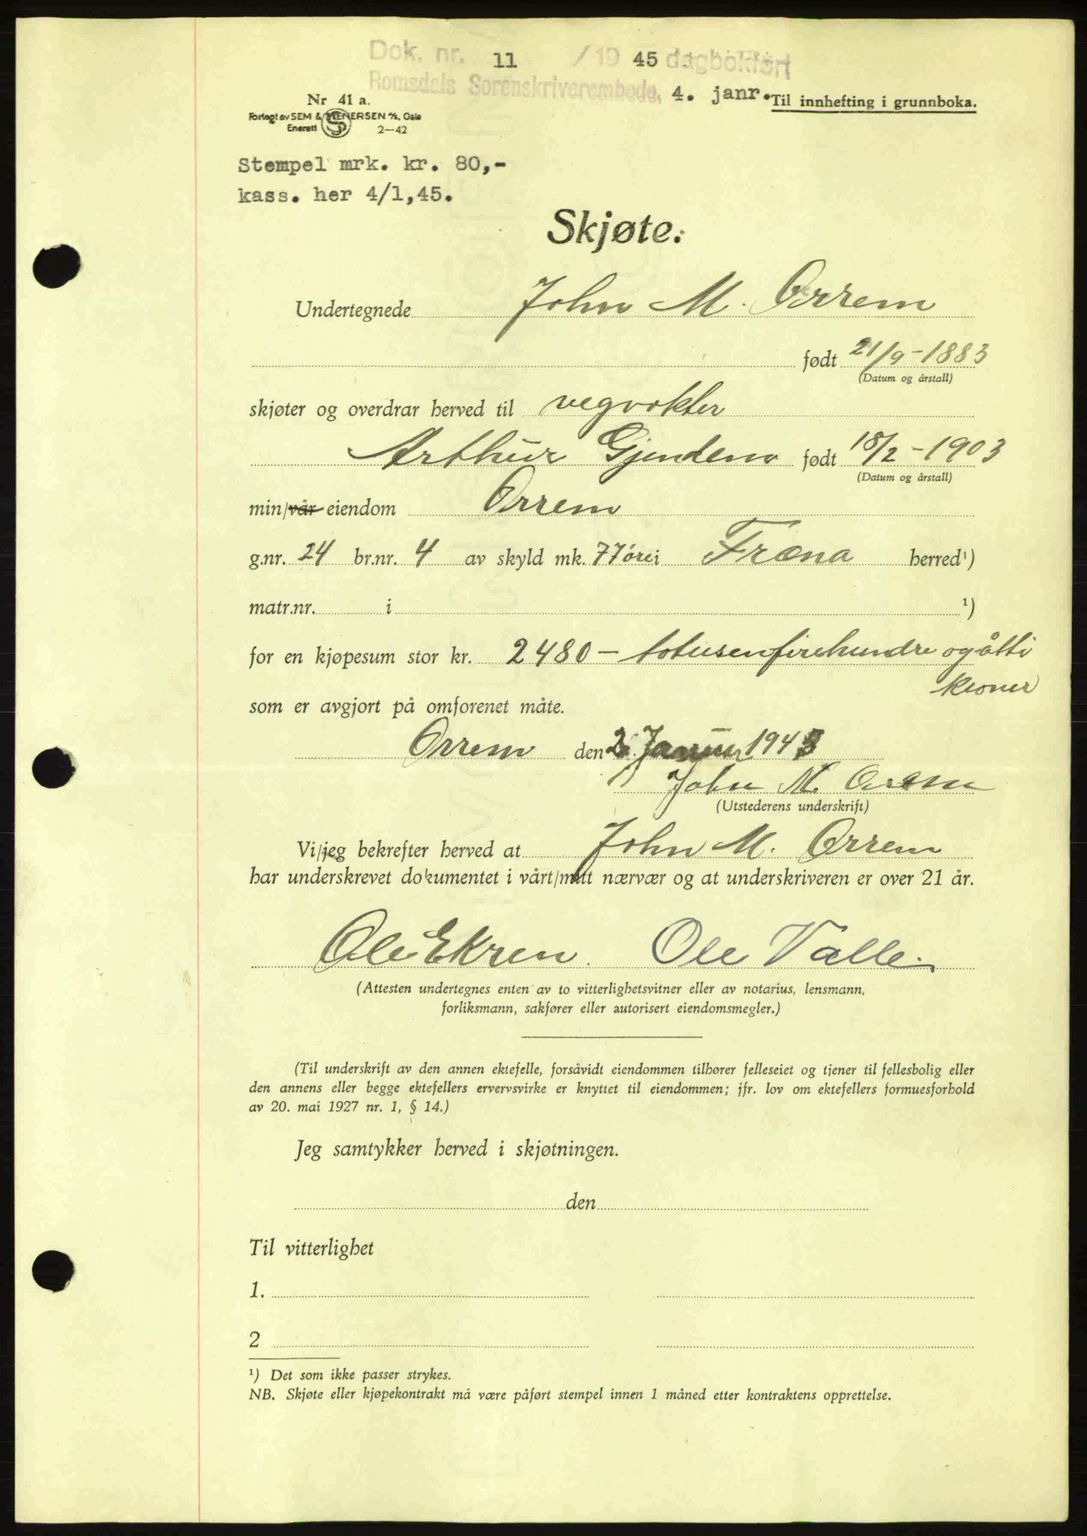 Dok. nr. 11 /19 45 dagbokført
Romsdals Sorenskriverembede, 4. janr.
Til innhefting i grunnboka.
Nr 41 a.
Forlagt av SEM & STENERSEN A/S, Oslo
Enerett 2-42
Stempel mrk. kr. 80,-
kass. her 4/1,45.
Skjøte.
Undertegnede John M. Orrem
født 21/9-1883
(Datum og årstall)
skjøter og overdrar herved til vegvokter
Arthur Gjendem født 18/2-1903
(Datum og årstall)
min/vår eiendom Orrem
g.nr. 24 br.nr. 4 av skyld mk. 77 øre i Fræna herred¹)
matr.nr. i ¹)
for en kjøpesum stor kr. 2480 - totusenfirehundre og åtti
kroner
som er avgjort på omforenet måte.
Orrem den 2. Januar 1945
John M. Orrem
(Utstederens underskrift)
Vi/jeg bekrefter herved at John M. Orrem
har underskrevet dokumentet i vårt/mitt nærvær og at underskriveren er over 21 år.
Ole Ekren. Ole Valle.
(Attesten undertegnes enten av to vitterlighetsvitner eller av notarius, lensmann,
forliksmann, sakfører eller autorisert eiendomsmegler.)
(Til underskrift av den annen ektefelle, forsåvidt eiendommen tilhører felleseiet og tjener til fellesbolig eller
den annens eller begge ektefellers ervervsvirke er knyttet til eiendommen; jfr. lov om ektefellers formuesforhold
av 20. mai 1927 nr. 1, § 14.)
Jeg samtykker herved i skjøtningen.
den
Til vitterlighet
1.
2
¹) Det som ikke passer strykes.
NB. Skjøte eller kjøpekontrakt må være påført stempel innen 1 måned etter kontraktens opprettelse.